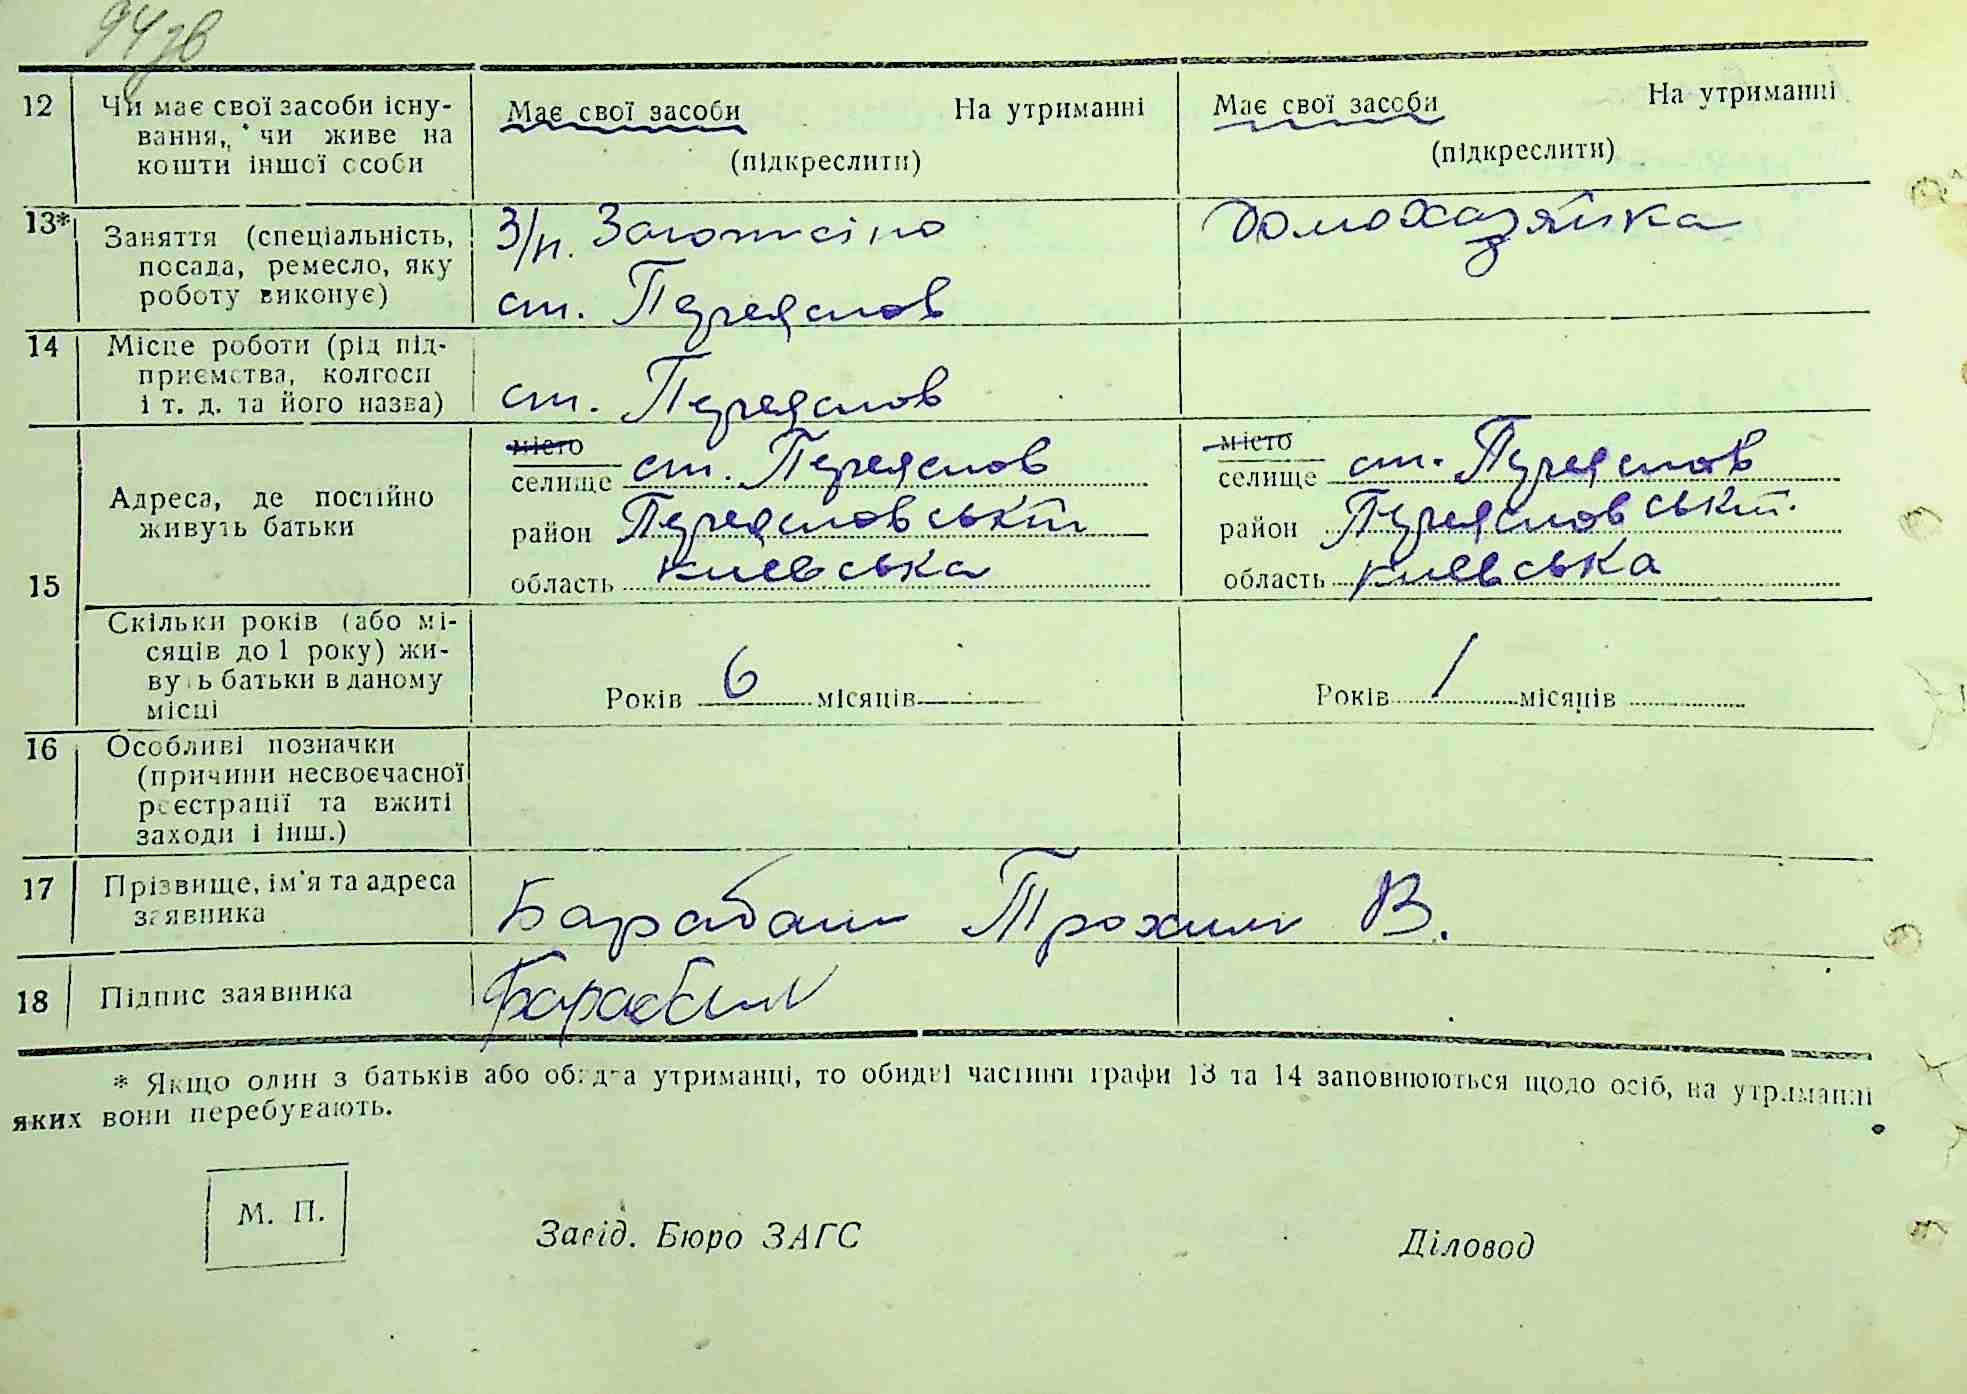 94зв
12 Чи має свої засоби існу-
вання, чи живе на
кошти іншої особи
Має свої засоби На утриманні
(підкреслити)
Має свої засоби На утриманні
(підкреслити)
13* Заняття (спеціальність,
посада, ремесло, яку
роботу виконує)
З/п. Заготсіно
ст. Переяслов
Домохазяйка
14 Місце роботи (рід під-
приємства, колгосп
і т. д. та його назва)
ст. Переяслов
15 Адреса, де постійно
живуть батьки
місто
селище ст. Переяслов
район Переясловський
область Київська
місто
селище ст. Переяслов
район Переясловськ.
область Київська
Скільки років (або мі-
сяців до 1 року) жи-
вуть батьки в даному
місці
Років 6 місяців
Років 1 місяців
16 Особливі позначки
(причини несвоєчасної
реєстрації та вжиті
заходи і інш.)
17 Прізвище, ім'я та адреса
заявника
Барабаш Трохим В.
18 Підпис заявника
Барабаш
* Якщо один з батьків або обидва утриманці, то обидві частини графи 13 та 14 заповнюються щодо осіб, на утриманні
яких вони перебувають.
М. П.
Завід. Бюро ЗАГС
Діловод